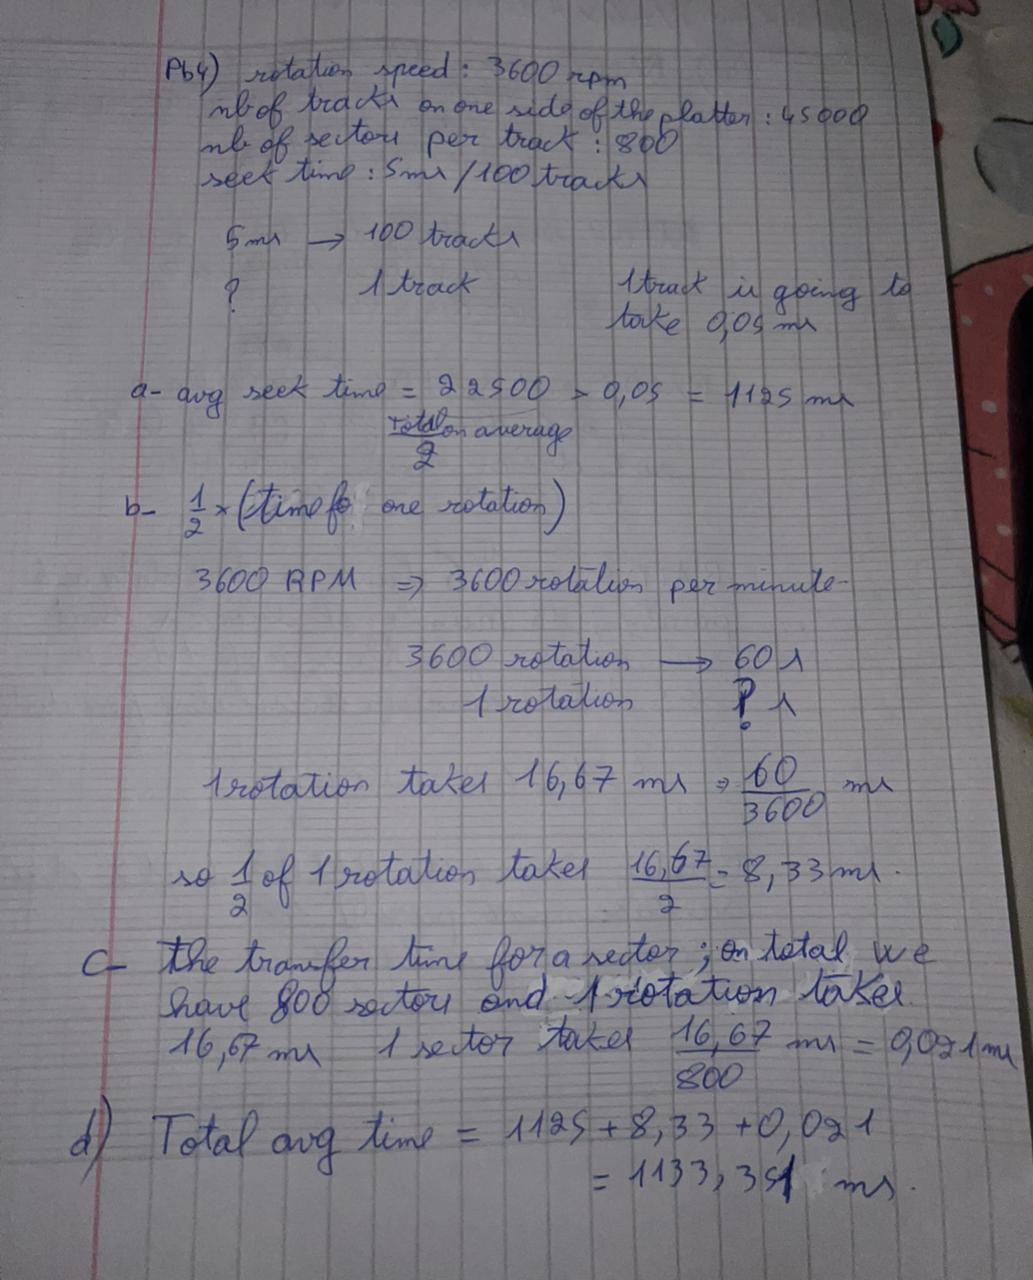 Pb4) rotation speed: 3600 rpm
nb of tracks on one side of the platter: 45000
nb of sectors per track: 800
seek time: 5ms/100 tracks
5ms → 100 tracks
? 1 track 1 track is going to
take 0,05 ms
a- avg seek time = 22500 × 0,05 = 1125 ms
total on average
2
b- 1/2 × (time for one rotation)
3600 RPM ⇒ 3600 rotation per minute
3600 rotation → 60 s
1 rotation ? s
1 rotation takes 16,67 ms ⇒ 60/3600 ms
so 1/2 of 1 rotation takes 16,67/2 = 8,33 ms.
c- the transfer time for a sector; on total we
have 800 sectors and 1 rotation takes
16,67 ms 1 sector takes 16,67/800 ms = 0,021 ms
d) Total avg time = 1125 + 8,33 + 0,021
= 1133,351 ms.